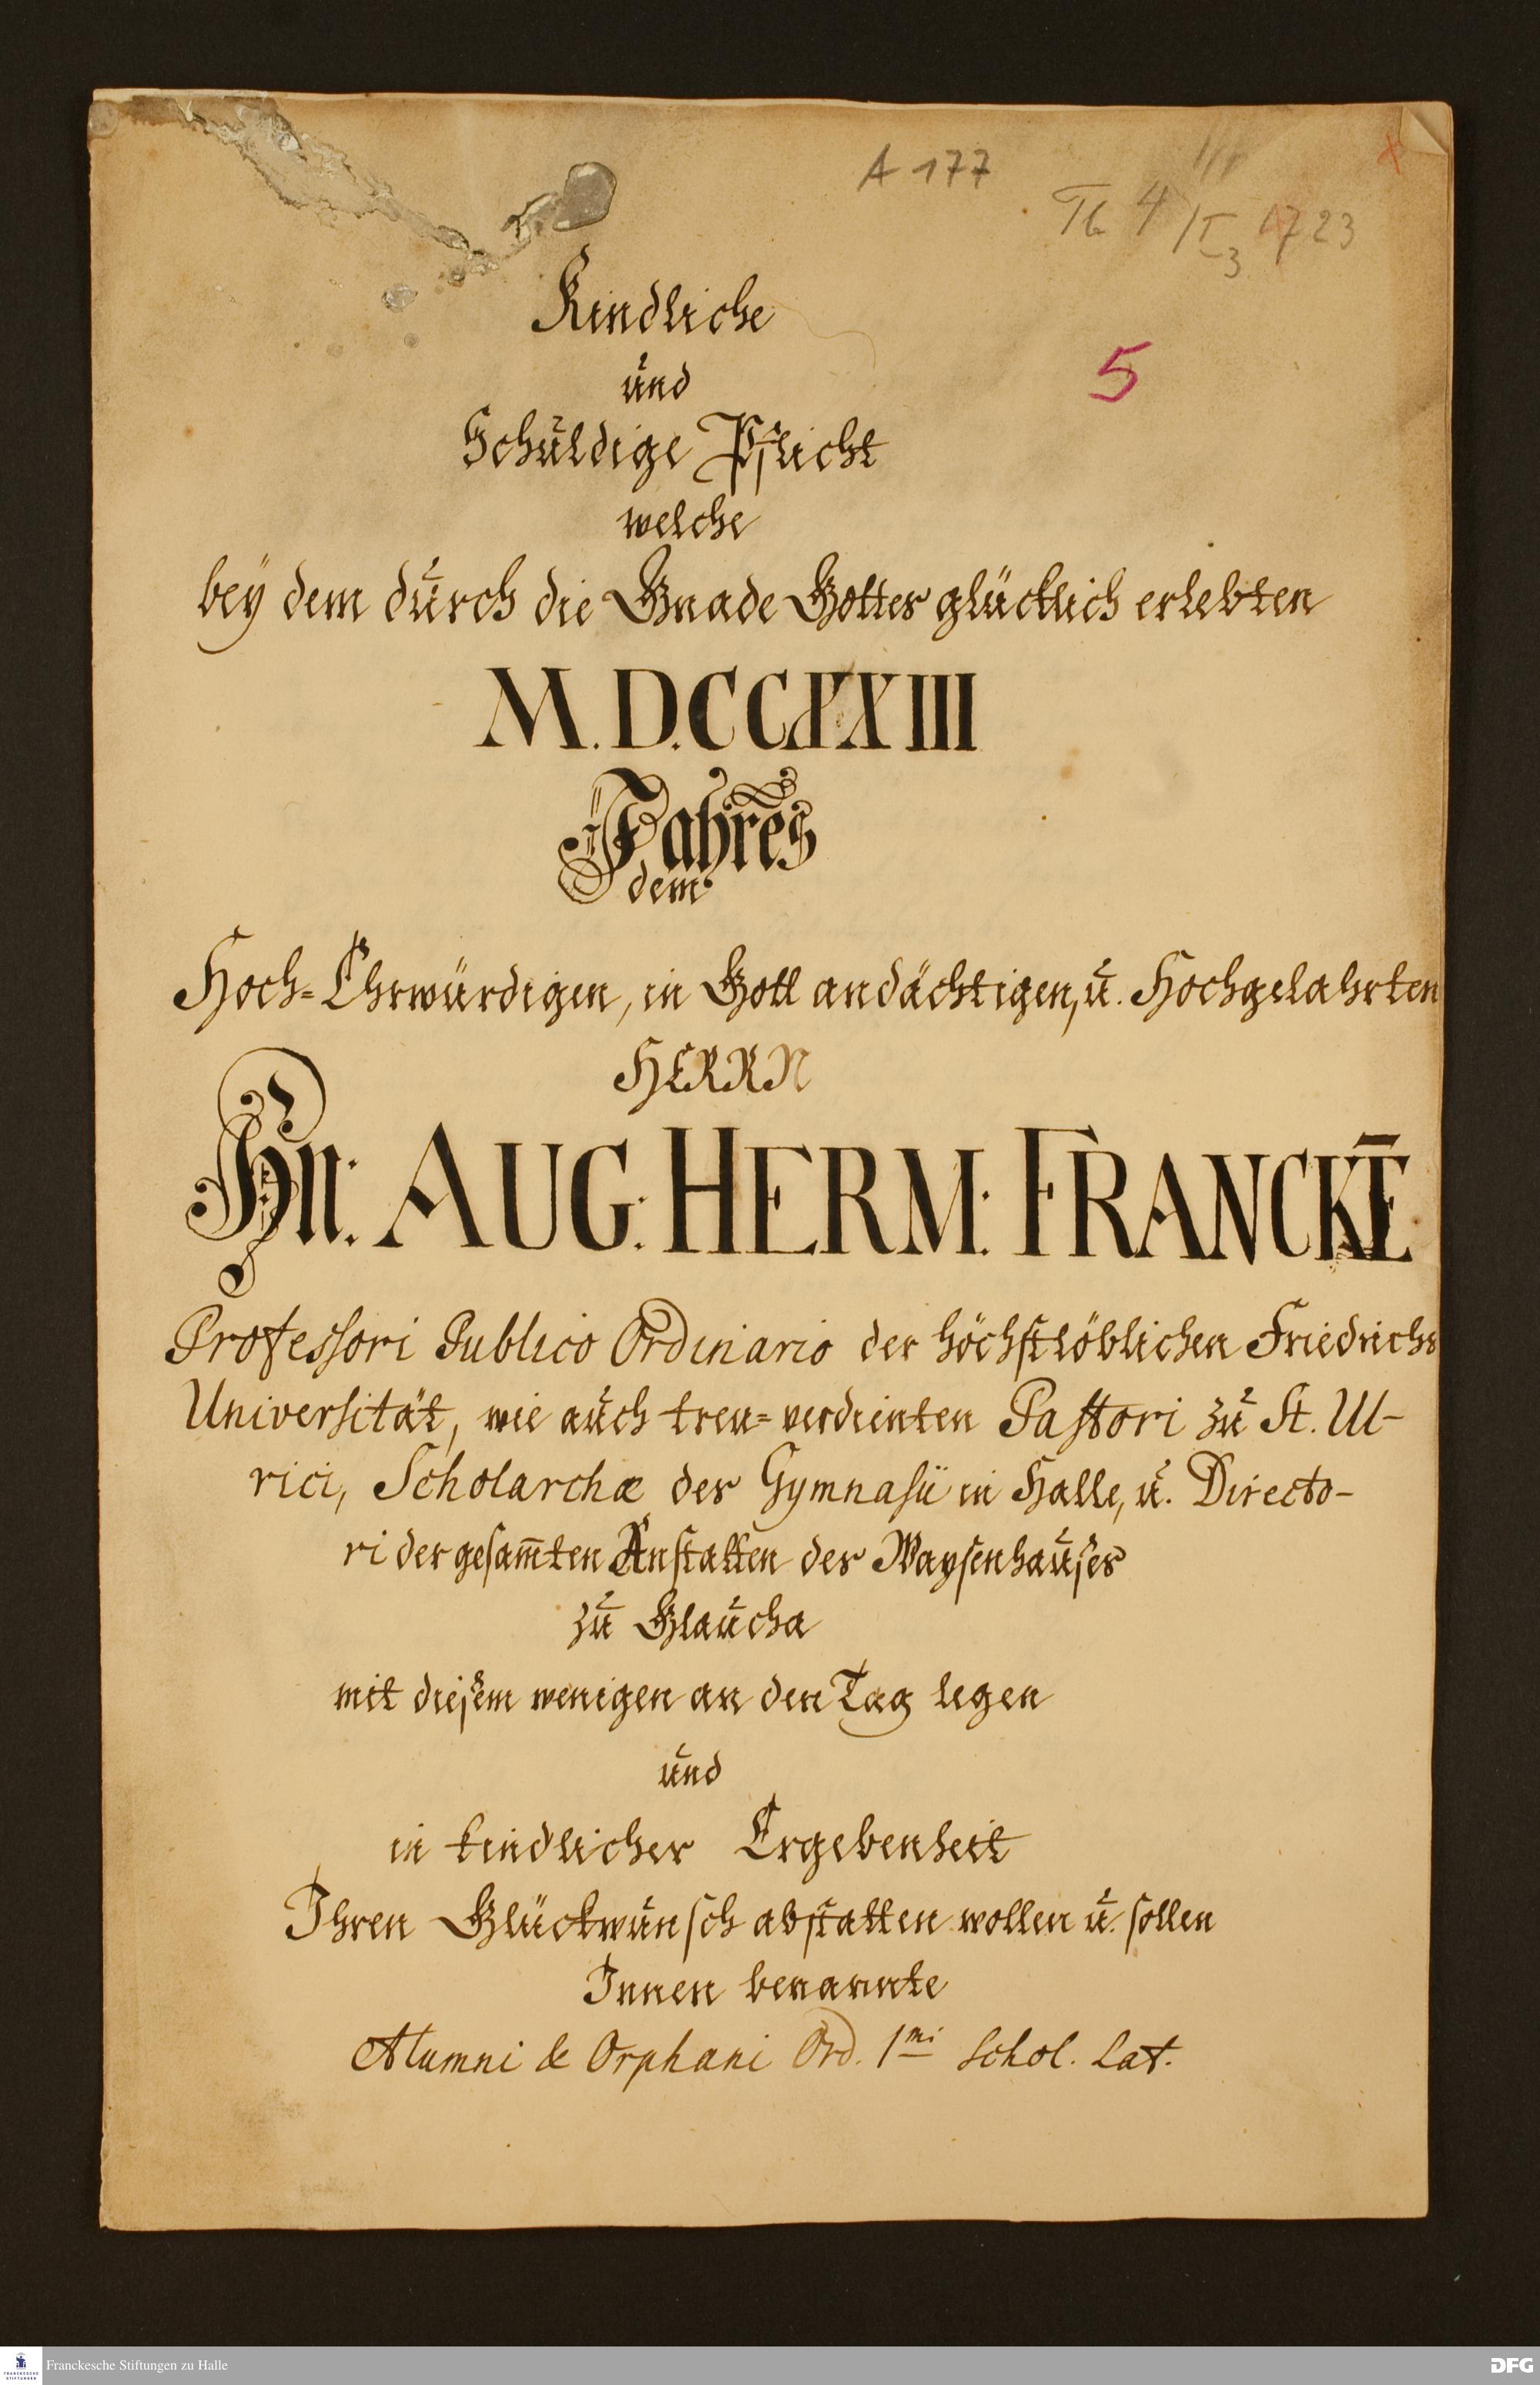 A 177
4 1723
5
Kindliche
und
Schuldige Pflicht
welche
bey dem durch die Gnade Gottes glücklich erlebten
M.D.CCXXIII
Jahres
dem
Hoch-Ehrwürdigen, in Gott andächtigen, u. Hochgelahrten
HERRN
Hn. AUG. HERM: FRANCKĒ
Professori Publico Ordinario der höchstlöblichen Friedrichs
Universität, wie auch treu-verdienten Pastori zu St. Ul-
rici, Scholarchæ des Gymnasii in Halle, u. Directo-
ri der gesam̅ten Anstalten des Waysenhauses
zu Glaucha
mit diesem wenigen an den Tag legen
und
in kindlicher Ergebenheit
Ihren Glückwunsch abstatten wollen u. sollen
Innen benannte
Alumni & Orphani Ord. 1mi Schol. Lat.
FRANCKESCHE STIFTUNGEN
Franckesche Stiftungen zu Halle
DFG